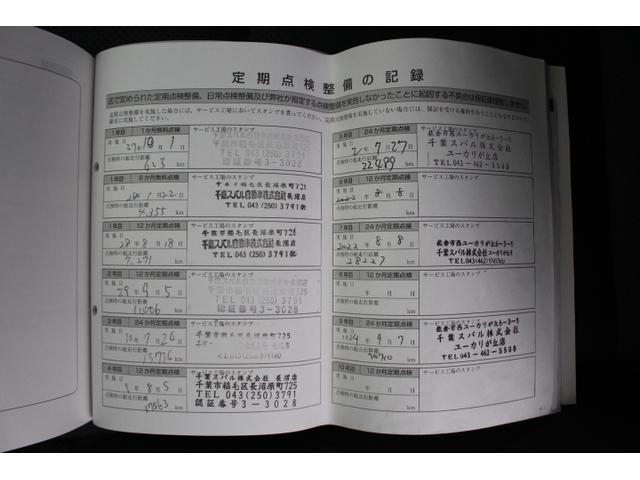 定期点検整備の記録
法で定められた定期点検整備、日常点検整備及び弊社が指定する点検整備を実施しなかったことに起因する不具合は保証修理致しません。
定期点検整備を実施した場合には、サービス工場においてスタンプを貰ってください。定期点検整備が実施していない場合には、保証を受ける権利を
確実に実施してください。
1年目 1か月無料点検 サービス工場のスタンプ
実施日
27年10月1日
点検時の総走行距離
623 km
TEL 043(250)3791
認証番号3-3028
1年目 6か月無料点検 サービス工場のスタンプ
実施日
28年1月22日
点検時の総走行距離
4,355 km
千葉市稲毛区長沼原町725
千葉スバル自動車株式会社長沼店
TEL 043(250)3791
1年目 12か月定期点検 サービス工場のスタンプ
実施日
28年8月18日
点検時の総走行距離
7,271 km
千葉市稲毛区長沼原町725
千葉スバル自動車株式会社長沼店
TEL 043(250)3791
2年目 12か月定期点検 サービス工場のスタンプ
実施日
29年9月5日
点検時の総走行距離
11056 km
TEL 043(250)3791
認証番号3-3028
3年目 24か月定期点検 サービス工場のスタンプ
実施日
30年7月26日
点検時の総走行距離
15736 km
千葉市稲毛区長沼原町725
4年目 12か月定期点検 サービス工場のスタンプ
実施日
1年8月5日
点検時の総走行距離
17563 km
千葉スバル株式会社 長沼店
千葉市稲毛区長沼原町725
TEL 043(250)3791
認証番号3-3028
5年目 24か月定期点検 サービス工場のスタンプ
実施日
2年7月27日
点検時の総走行距離
22499 km
佐倉市西ユーカリが丘6-3-5
千葉スバル株式会社
ユーカリが丘店
TEL.043-462-5500
6年目 12か月定期点検 サービス工場のスタンプ
実施日
2022年8月8日
点検時の総走行距離
km
7年目 24か月定期点検 サービス工場のスタンプ
実施日
2022年8月8日
点検時の総走行距離
28227 km
佐倉市西ユーカリが丘6-3-5
千葉スバル株式会社ユーカリが丘店
TEL.043(462)5500
8年目 12か月定期点検 サービス工場のスタンプ
実施日
年 月 日
点検時の総走行距離
km
9年目 24か月定期点検 サービス工場のスタンプ
実施日
2024年9月7日
点検時の総走行距離
km
佐倉市西ユーカリが丘6-3-5
千葉スバル株式会社
ユーカリが丘店
TEL.043-462-5500
10年目 12か月定期点検 サービス工場のスタンプ
実施日
年 月 日
点検時の総走行距離
km